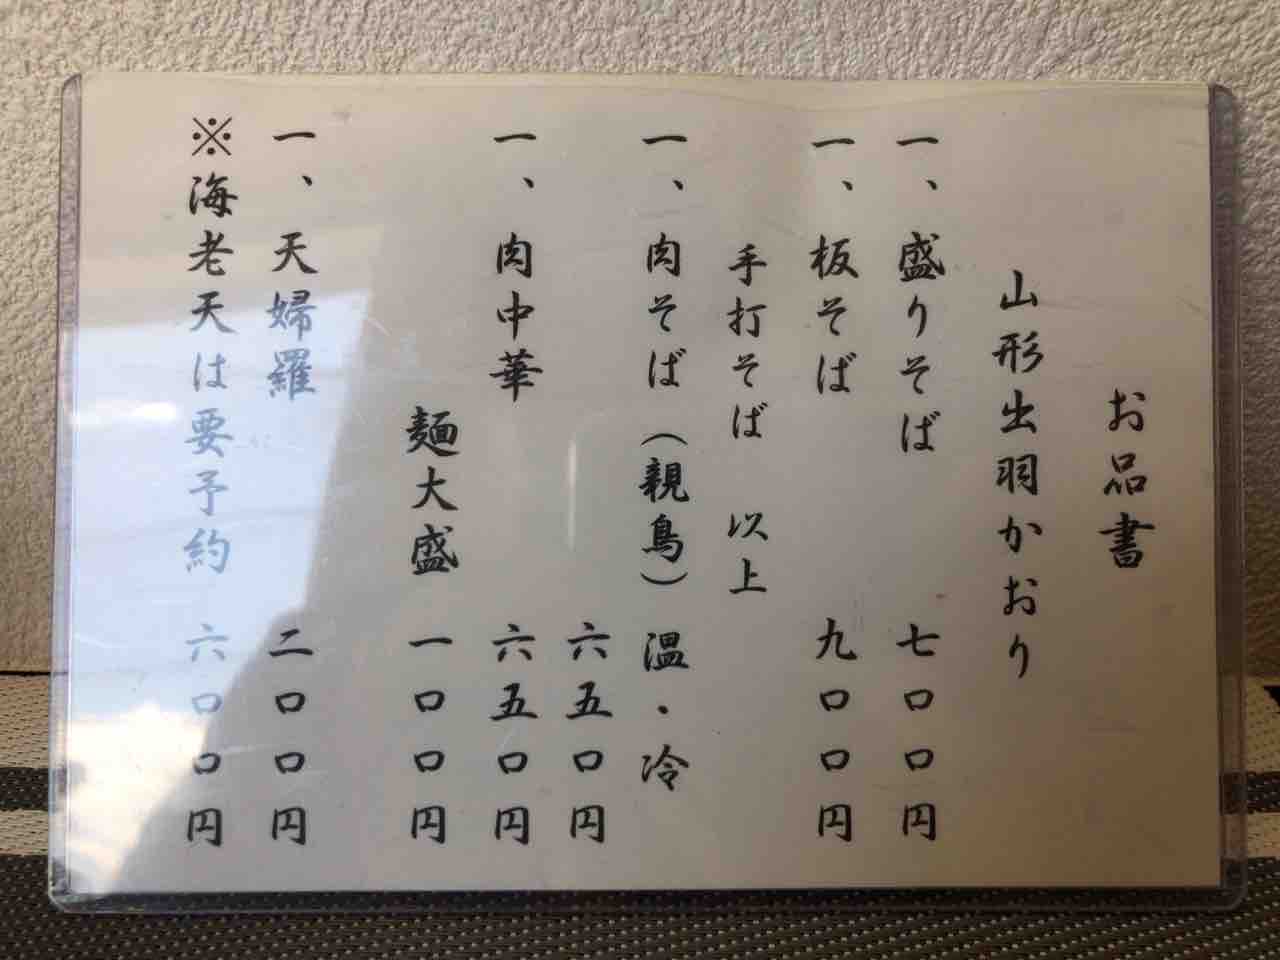 お品書
山形出羽かおり
一、盛りそば 七〇〇円
一、板そば 九〇〇円
手打そば 以上
一、肉そば（親鳥）温・冷
六五〇円
一、肉中華 六五〇円
麺大盛 一〇〇円
一、天婦羅 二〇〇円
※海老天は要予約 六〇〇円